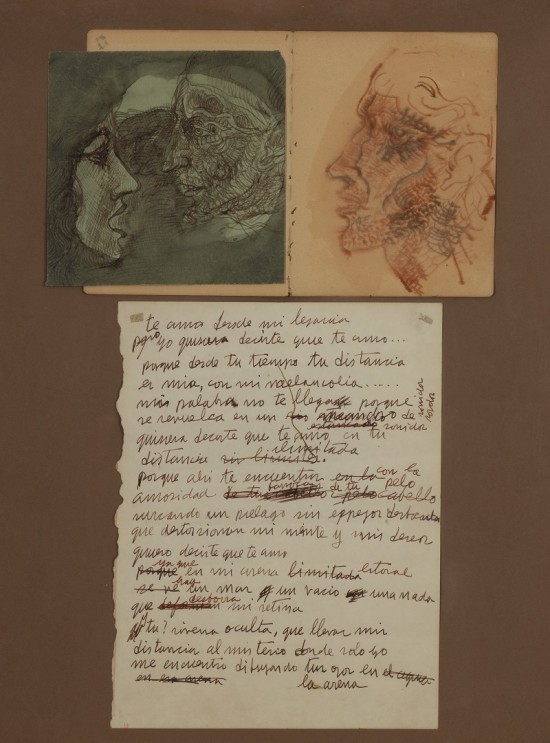 te amo desde mi lejania
pero yo quisiera decirte que te amo...
porque desde tu tiempo tu distancia
es mia, con mi melancolia.....
mis palabra no te llega porque
se revuelca en un de sonidos
quisiera decirte que te amo, en tu
distancia sin limites. ilimitada
porque ahi te encuentras en la con la
amorosidad de tus de tu pelo cabello
surcando un pielago sin espejos
que destorsionan mi mente y mis deseos
quiero decirte que te amo
porque ya que en mi arena limitada litoral
se ve hay un mar un vacio una nada
que desborra mi retina
y tu? sirena oculta, que llevas mis
distancia al misterio donde solo yo
me encuentro dibujando tus ojos en el agua
en esa arena la arena